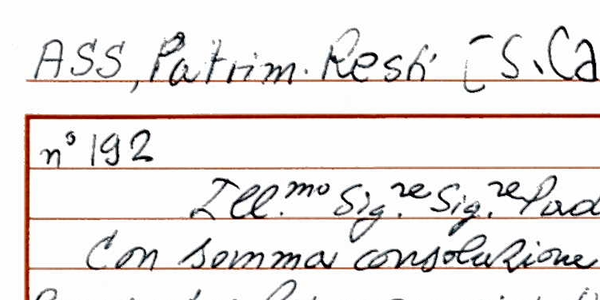 ASS, Patrim. Resti [S. Ca
n° 192
Ill.mo Sig.re Sig.re Pad
Con somma consolazione